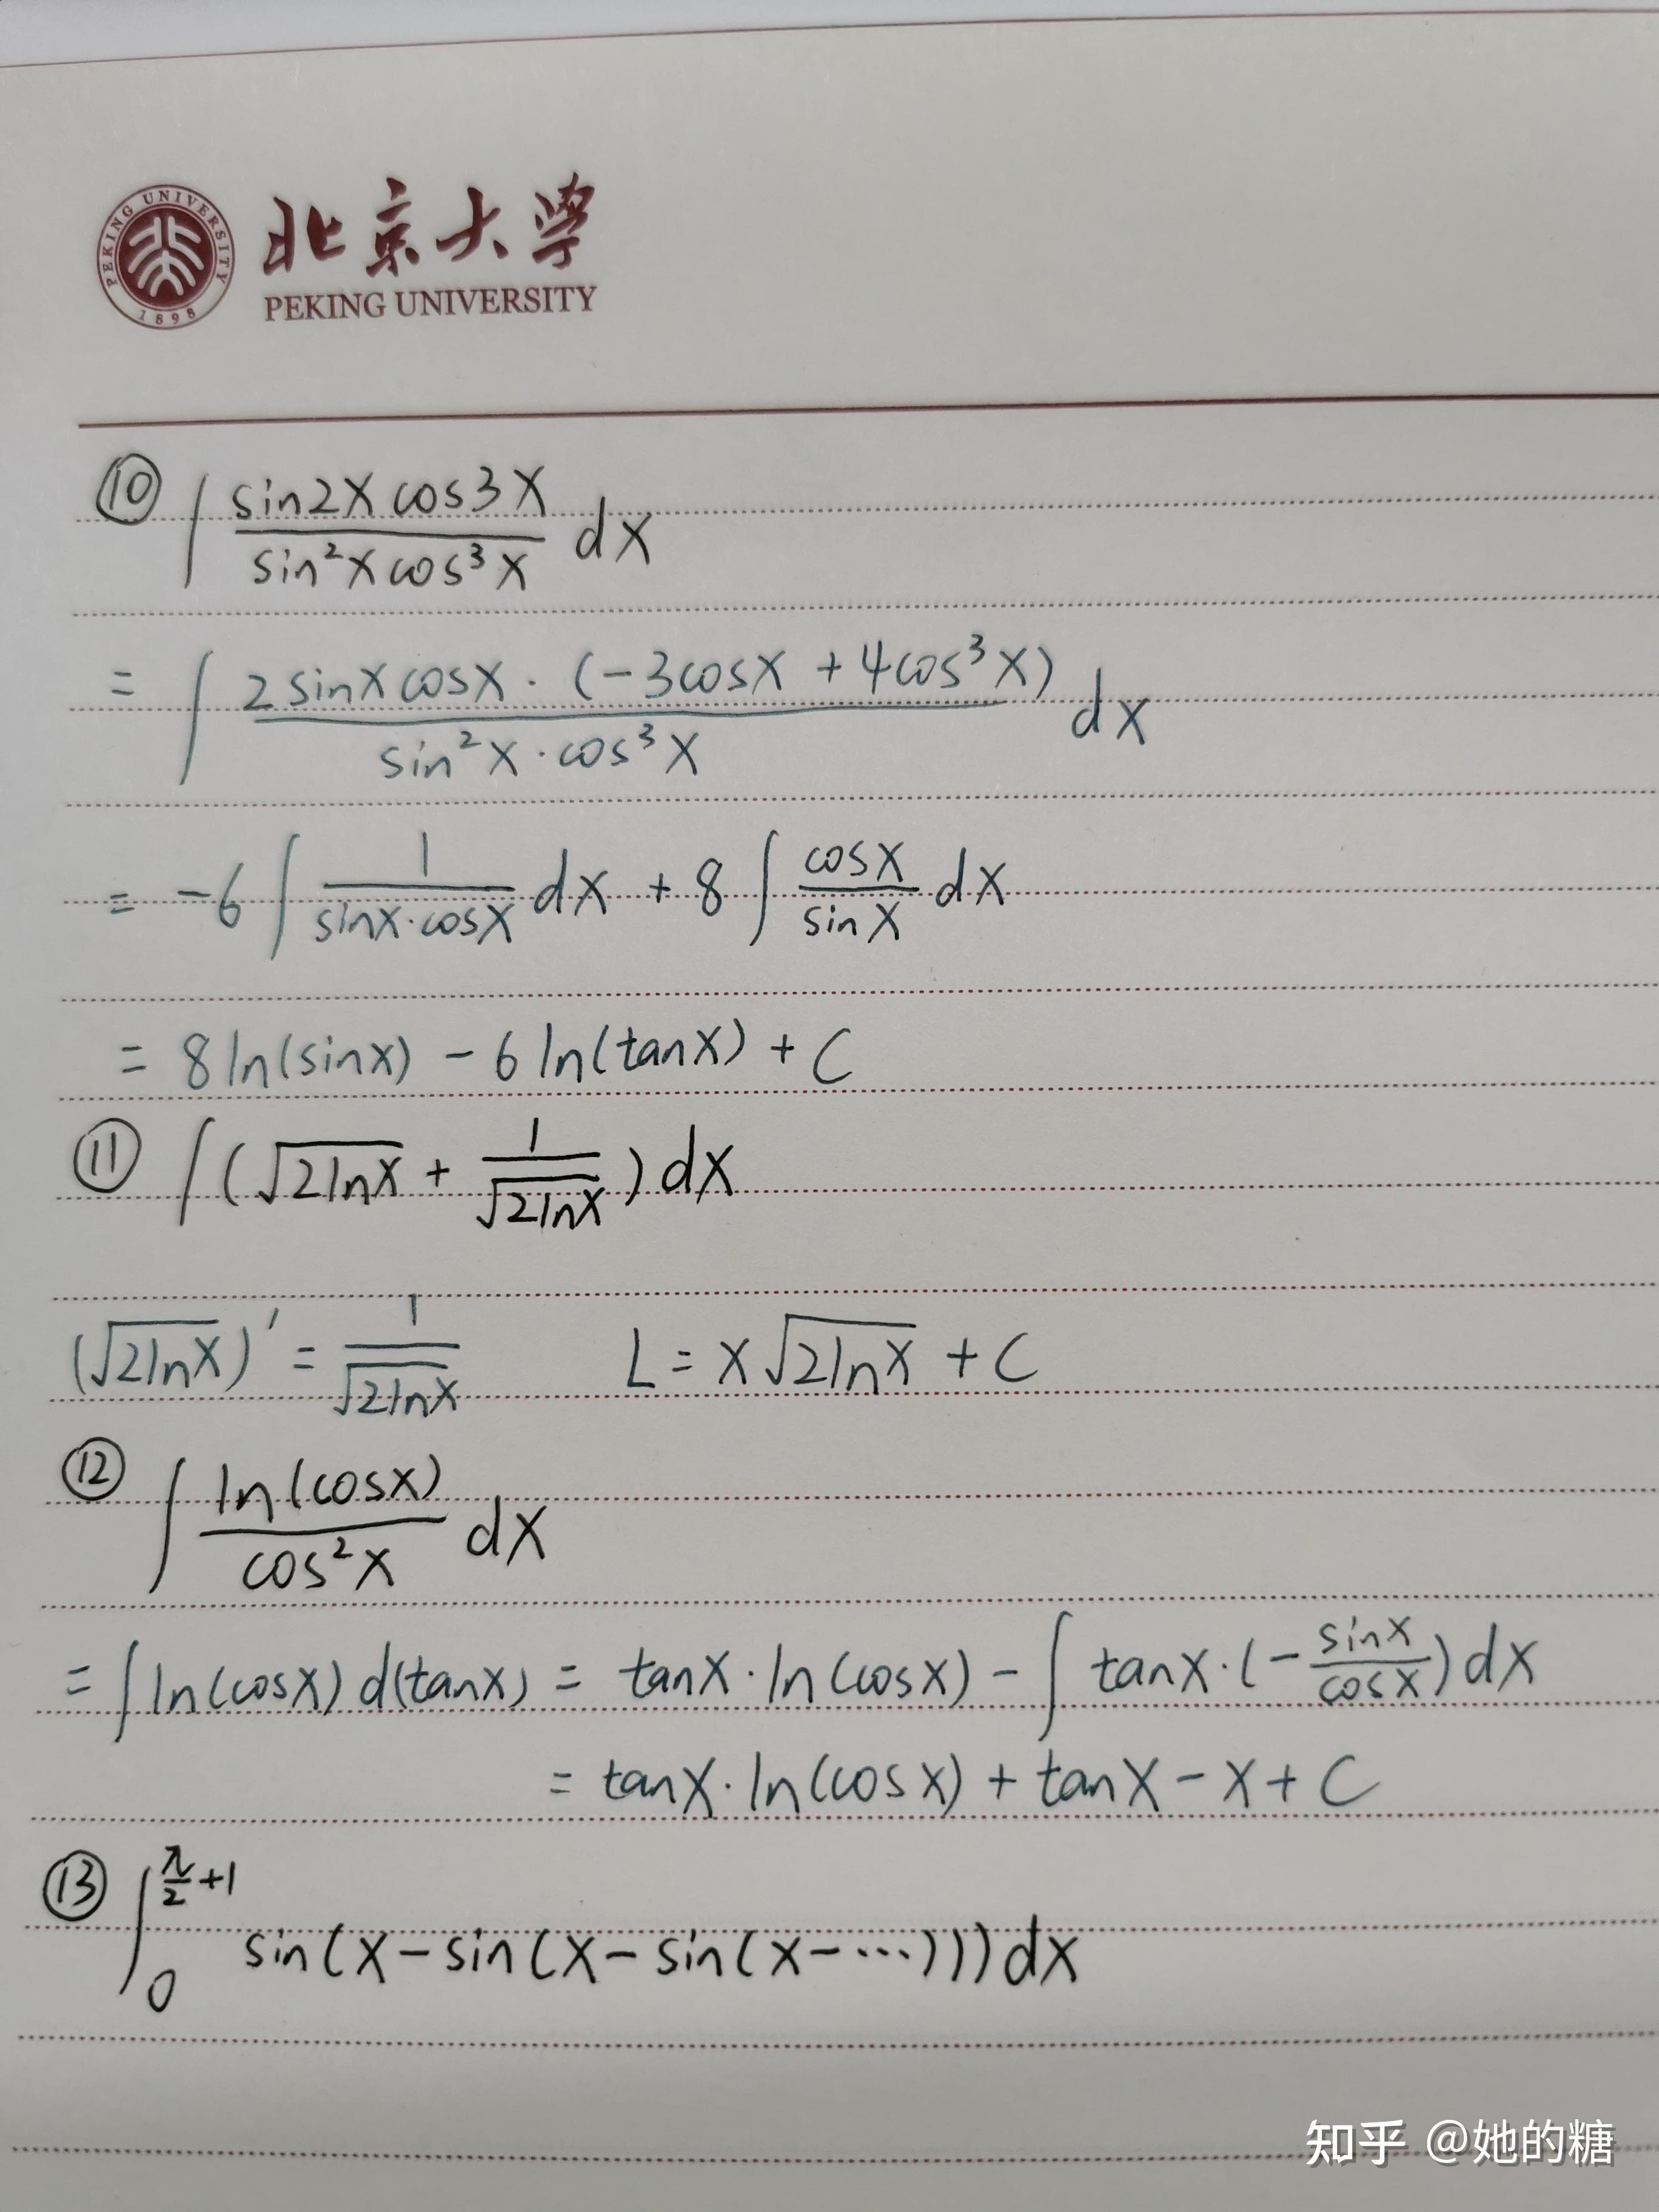 北京大学
PEKING UNIVERSITY
PEKING UNIVERSITY 1898
⑩ ∫ (sin2x cos3x)/(sin²x cos³x) dx
= ∫ (2 sinx cosx · (-3cosx + 4cos³x))/(sin²x · cos³x) dx
= -6 ∫ 1/(sinx·cosx) dx + 8 ∫ cosx/sinx dx
= 8 ln(sinx) - 6 ln(tanx) + C
⑪ ∫ (√(2lnx) + 1/√(2lnx)) dx
(√(2lnx))' = 1/√(2lnx) L = x√(2lnx) + C
⑫ ∫ ln(cosx)/cos²x dx
= ∫ ln(cosx) d(tanx) = tanx · ln(cosx) - ∫ tanx · (- sinx/cosx) dx
= tanx · ln(cosx) + tanx - x + C
⑬ ∫₀^(π/2 +1) sin(x - sin(x - sin(x - ···))) dx
知乎 @她的糖